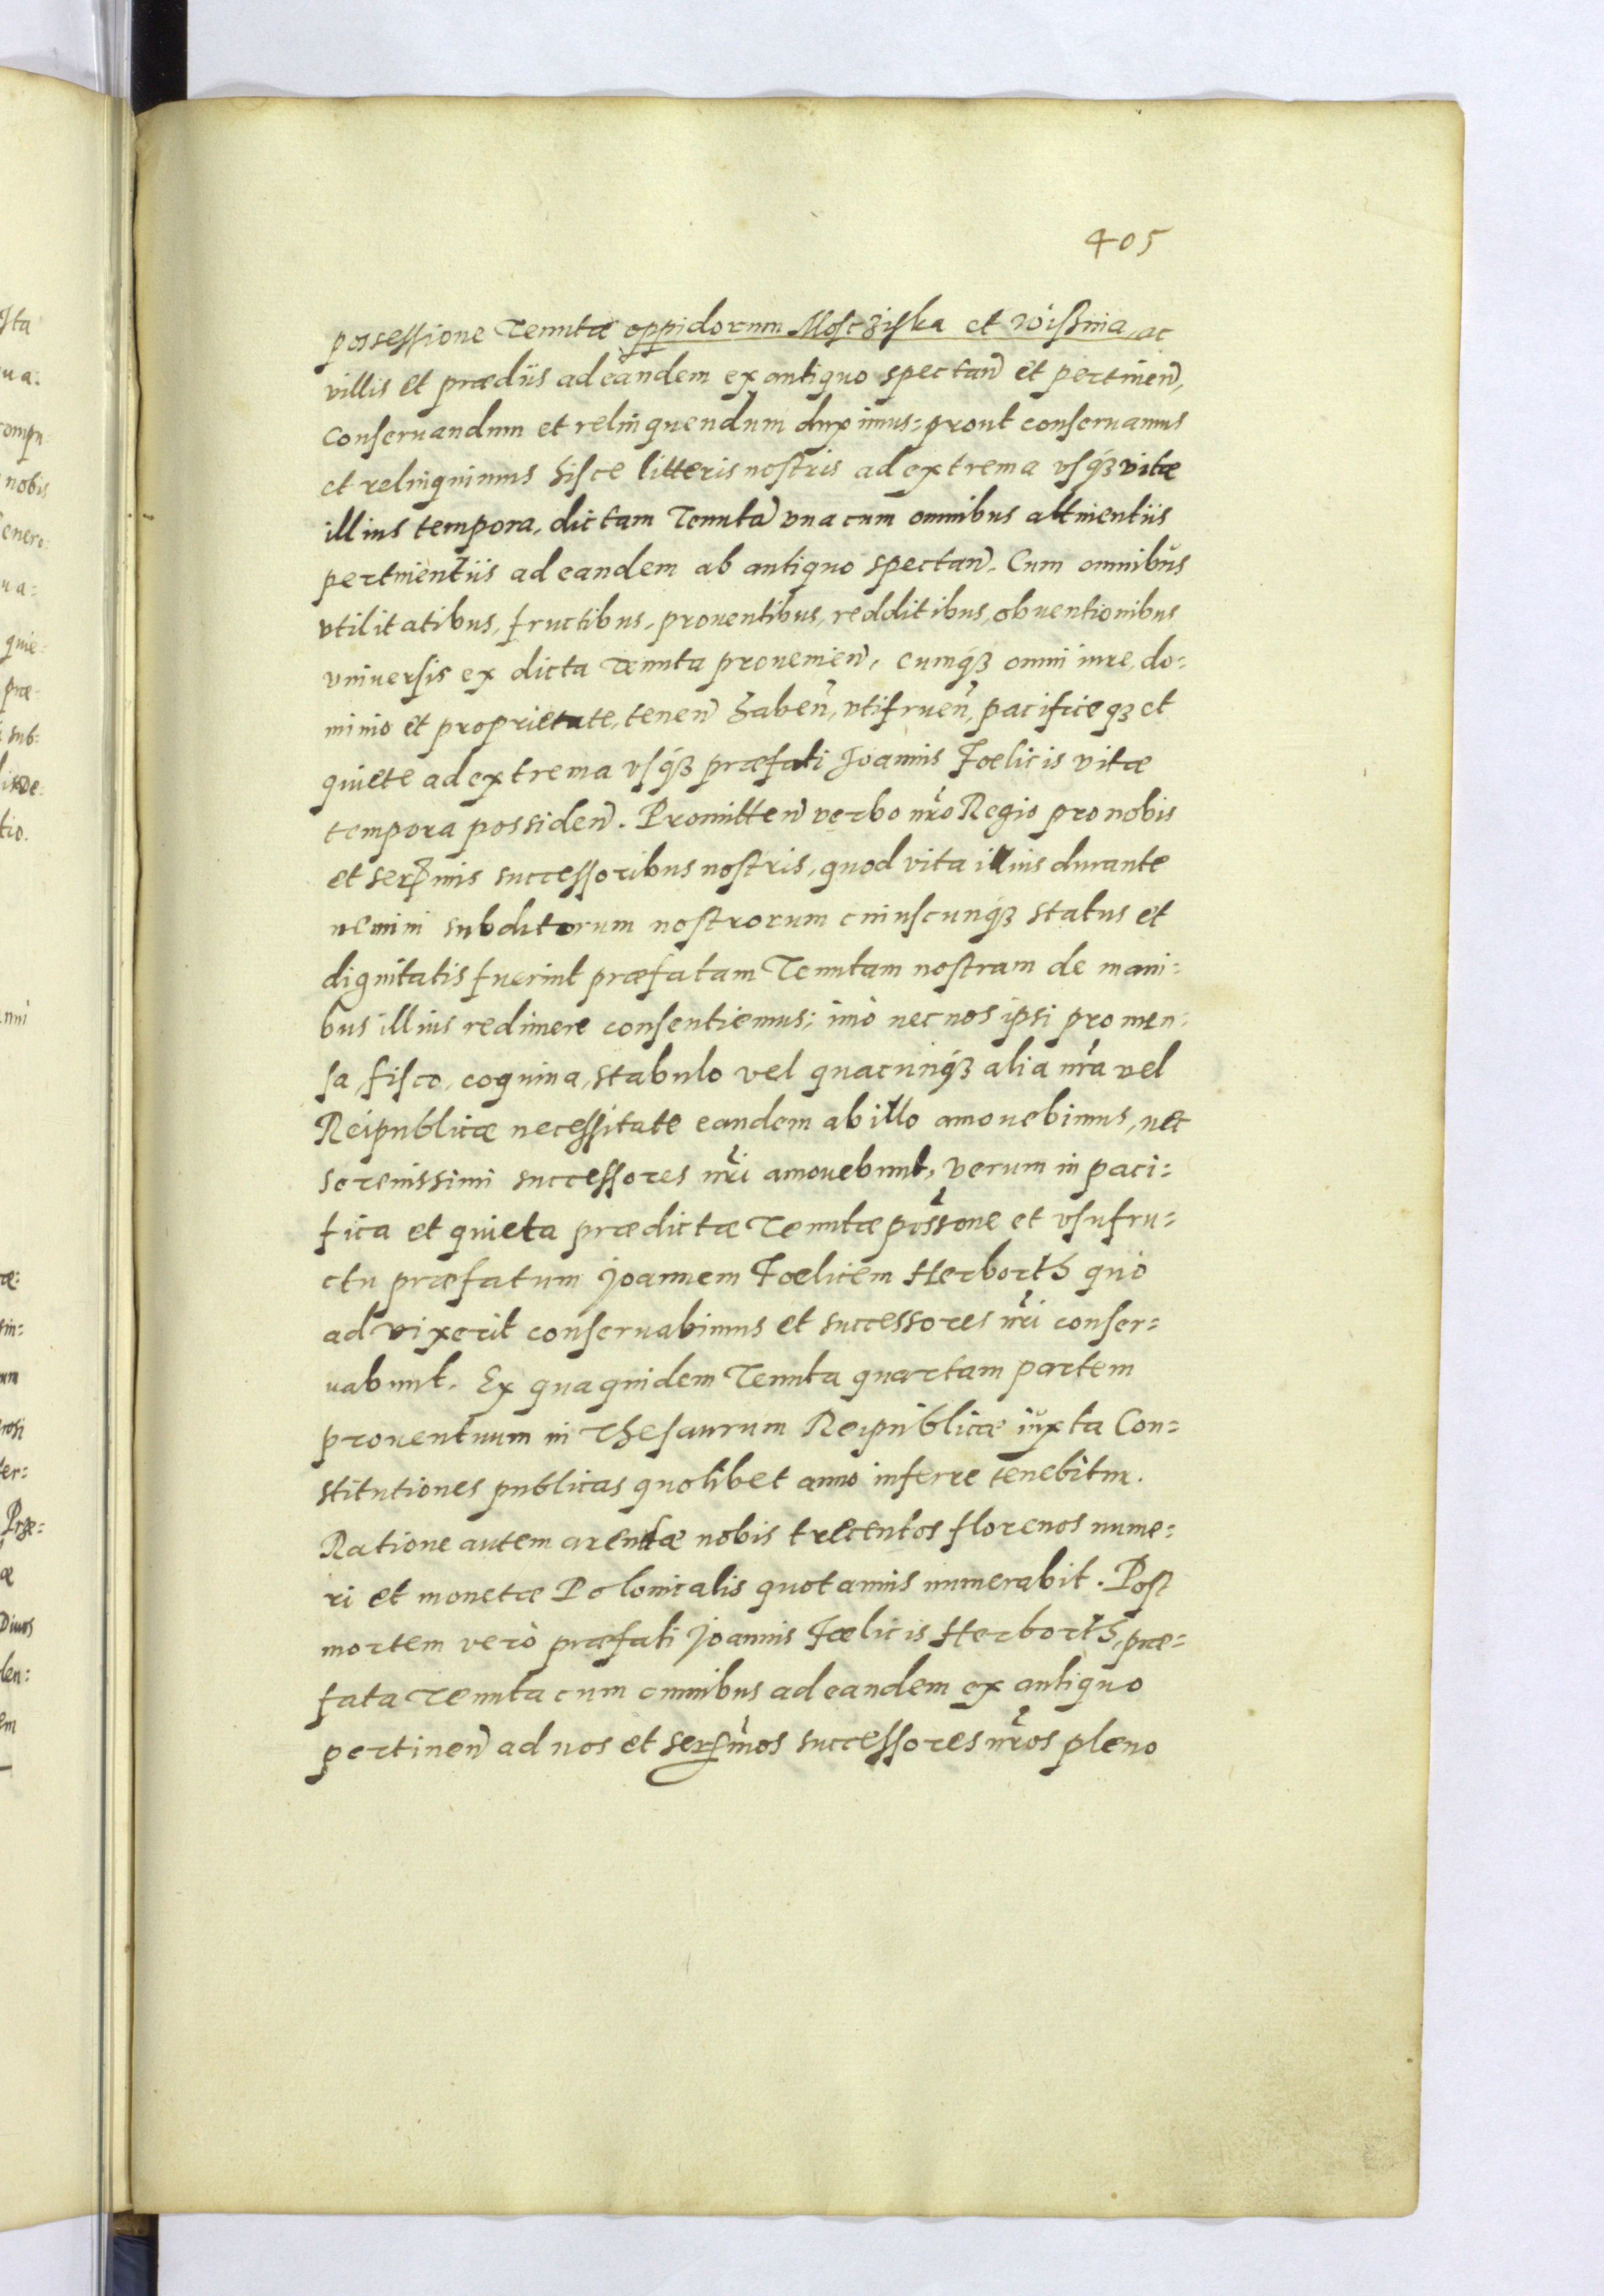 405
possessione Tenutæ oppidorum Moscziska et Wisznia, ac
villis et prædiis ad eandem ex antiquo spectañ et pertineñ,
conseruandum et relinquendum duximus: prout conseruamus
et relinquimus hisce litteris nostris ad extrema vsq3 vitæ
illius tempora, dictam Tenutã vna cum omnibus attinentiis
pertinentiis ad eandem ab antiquo spectañ. Cum omnibus
vtilitatibus, fructibus, prouentibus, redditibus, obuentionibus
vniuersis ex dicta Tenuta prouenieñ, cumq3 omni iure, do:
minio et proprietate, teneñ habeñ, vtifrueñ, pacificeq3 et
quiete ad extrema vsq3 præfati Joannis Fœlicis vitæ
tempora possideñ. Promitteñ verbo nr̃o Regio pro nobis
et serẽnis successoribus nostris, quod vita illius durante
nemini subditorum nostrorum cuiuscunq3 status et
dignitatis fuerint præfatam Tenutam nostram de mani:
bus illius redimere consentiemus; imò nec nos ipsi pro men:
sa, fisco, coquina, stabulo vel quacunq3 alia nr̃a vel
Reipublicæ necessitate eandem ab illo amouebimus, nec
serenissimi successores nr̃i amouebunt, verum in paci:
fica et quieta prædictæ Tenutæ poss̃one et vsufru:
ctu præfatum Joannem Fœlicem Herborth quo
ad vixerit conseruabimus et successores nr̃i conser:
uabunt. Ex qua quidem Tenuta quartam partem
prouentuum in Thesaurum Reipublicæ iuxta Con:
stitutiones publicas quolibet anno inferre tenebitur.
Ratione autem arendæ nobis trecentos florenos nume:
ri et monetæ Polonicalis quotannis numerabit. Post
mortem verò præfati Joannis Fœlicis Herborth, præ:
fata Tenuta cum omnibus ad eandem ex antiquo
pertineñ ad nos et serm̃os successores nr̃os pleno